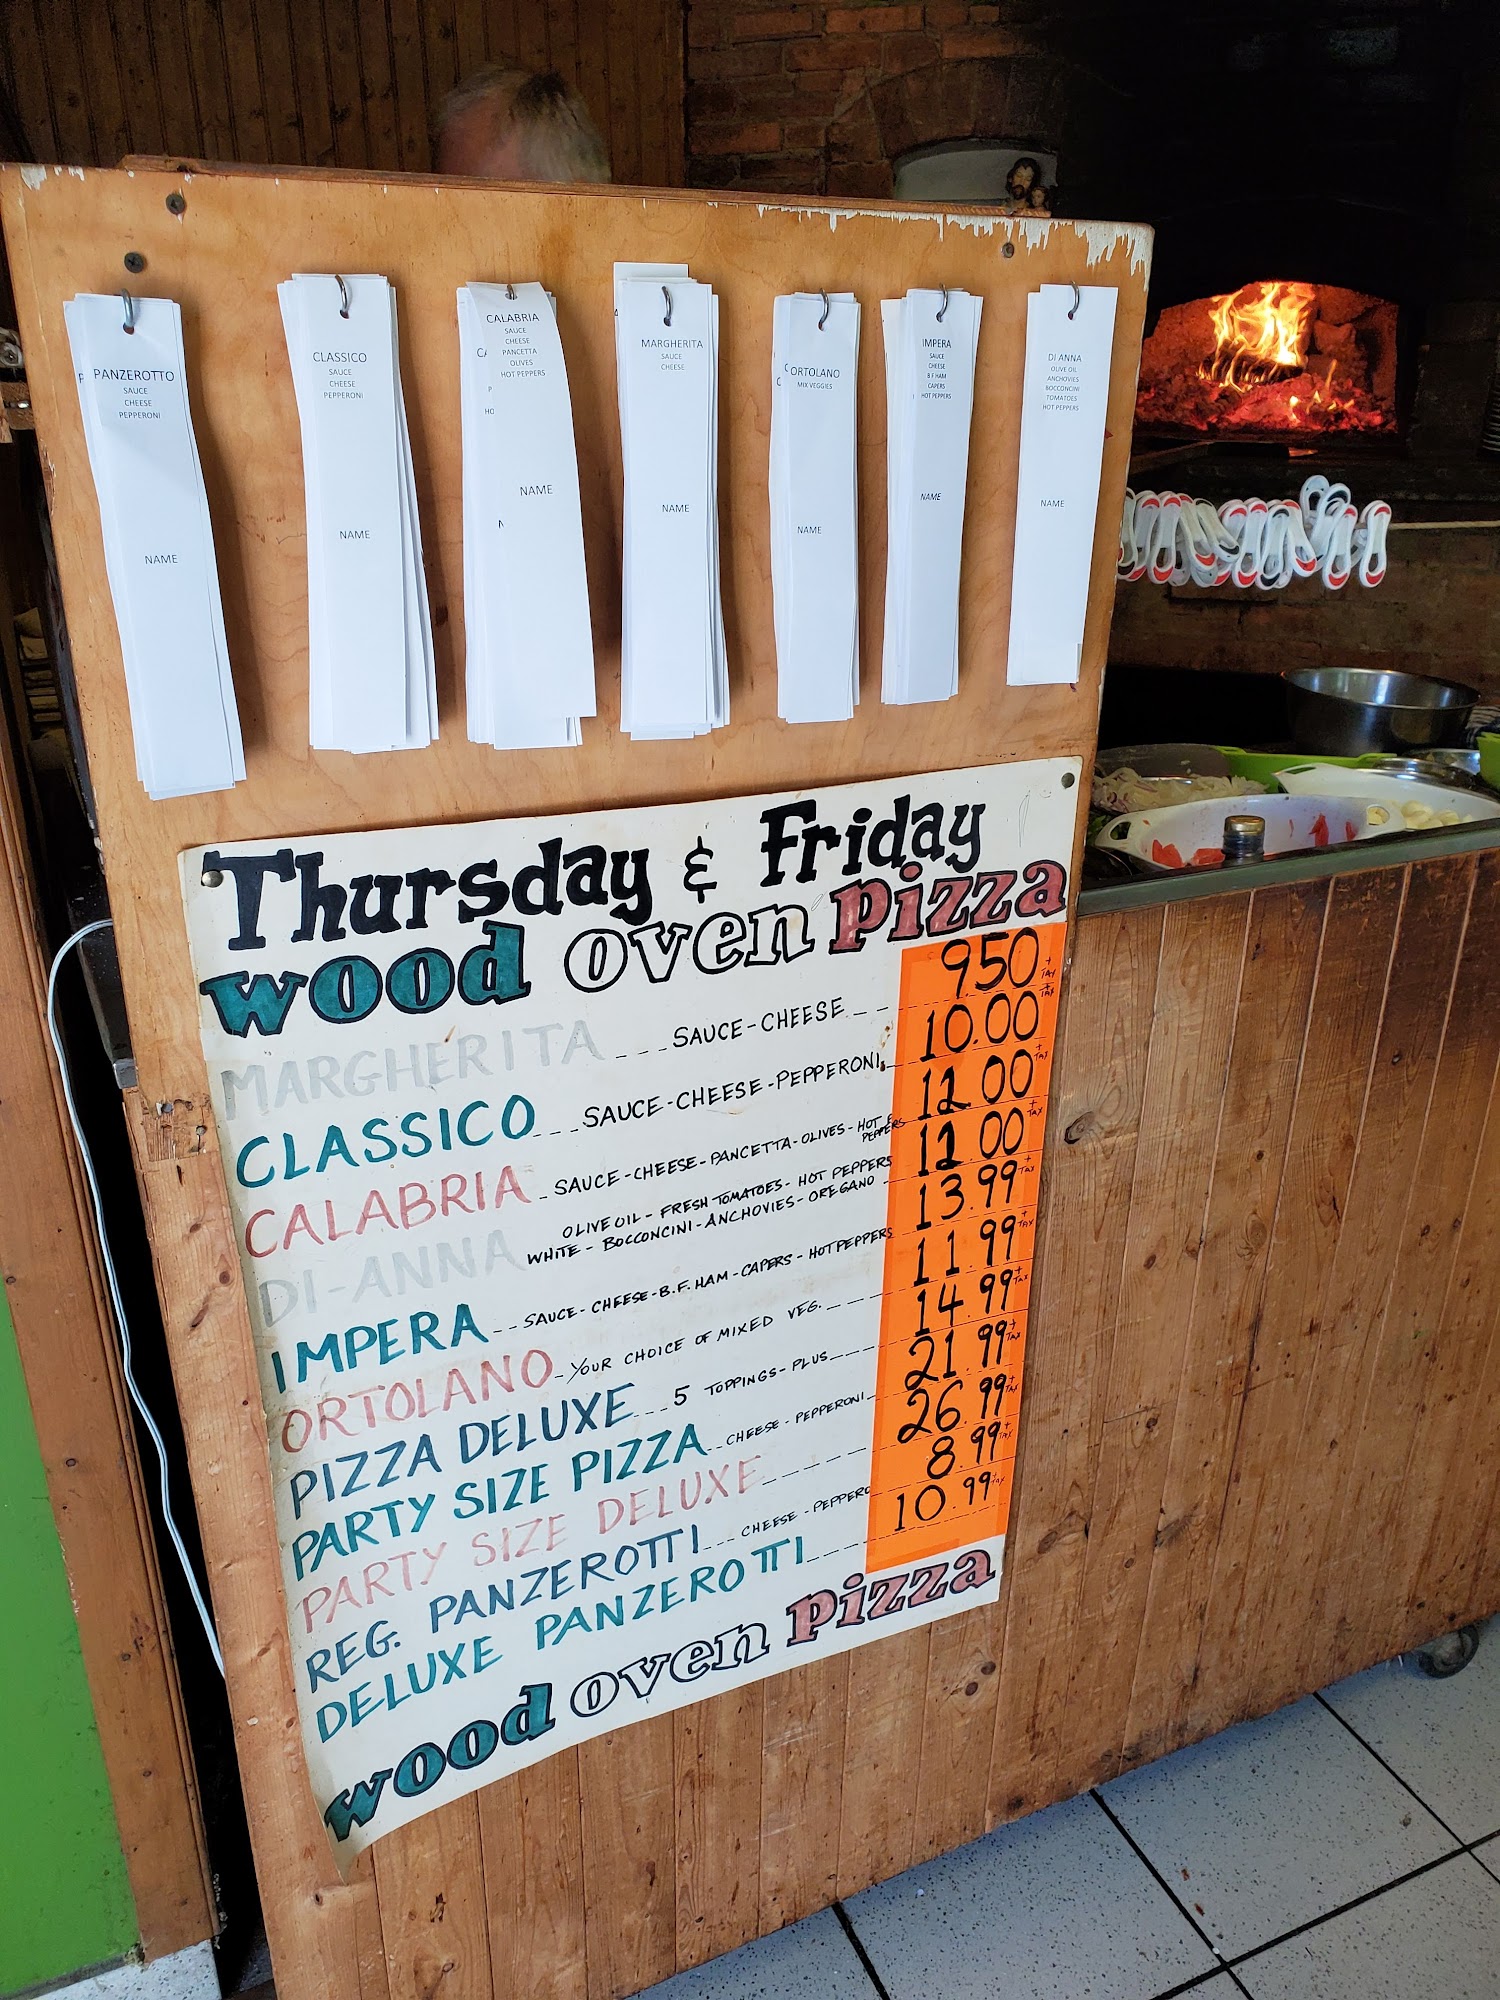 PANZEROTTO
SAUCE
CHEESE
PEPPERONI
NAME
CLASSICO
SAUCE
CHEESE
PEPPERONI
NAME
CALABRIA
SAUCE
CHEESE
PANCETTA
OLIVES
HOT PEPPERS
NAME
MARGHERITA
SAUCE
CHEESE
NAME
ORTOLANO
MIX VEGGIES
NAME
IMPERA
SAUCE
CHEESE
B F HAM
CAPERS
HOT PEPPERS
NAME
DI ANNA
OLIVE OIL
ANCHOVIES
BOCCONCINI
TOMATOES
HOT PEPPERS
NAME
Thursday & Friday
wood oven pizza
MARGHERITA ___ SAUCE-CHEESE __ 9.50 + TAX
CLASSICO ___ SAUCE-CHEESE-PEPPERONI 10.00 + TAX
CALABRIA - SAUCE-CHEESE-PANCETTA-OLIVES-HOT PEPPERS 12.00 + TAX
DI-ANNA OLIVE OIL - FRESH TOMATOES - HOT PEPPERS 12.00 + TAX
WHITE - BOCCONCINI - ANCHOVIES - OREGANO
IMPERA -- SAUCE - CHEESE - B.F. HAM - CAPERS - HOT PEPPERS 13.99 + TAX
ORTOLANO - YOUR CHOICE OF MIXED VEG. 11.99 + TAX
PIZZA DELUXE --- 5 TOPPINGS - PLUS --- 14.99 + TAX
PARTY SIZE PIZZA -- CHEESE - PEPPERONI 21.99 + TAX
PARTY SIZE DELUXE ---- 26.99 + TAX
REG. PANZEROTTI --- CHEESE - PEPPERO 8.99 + TAX
DELUXE PANZEROTTI --- 10.99 + TAX
wood oven pizza